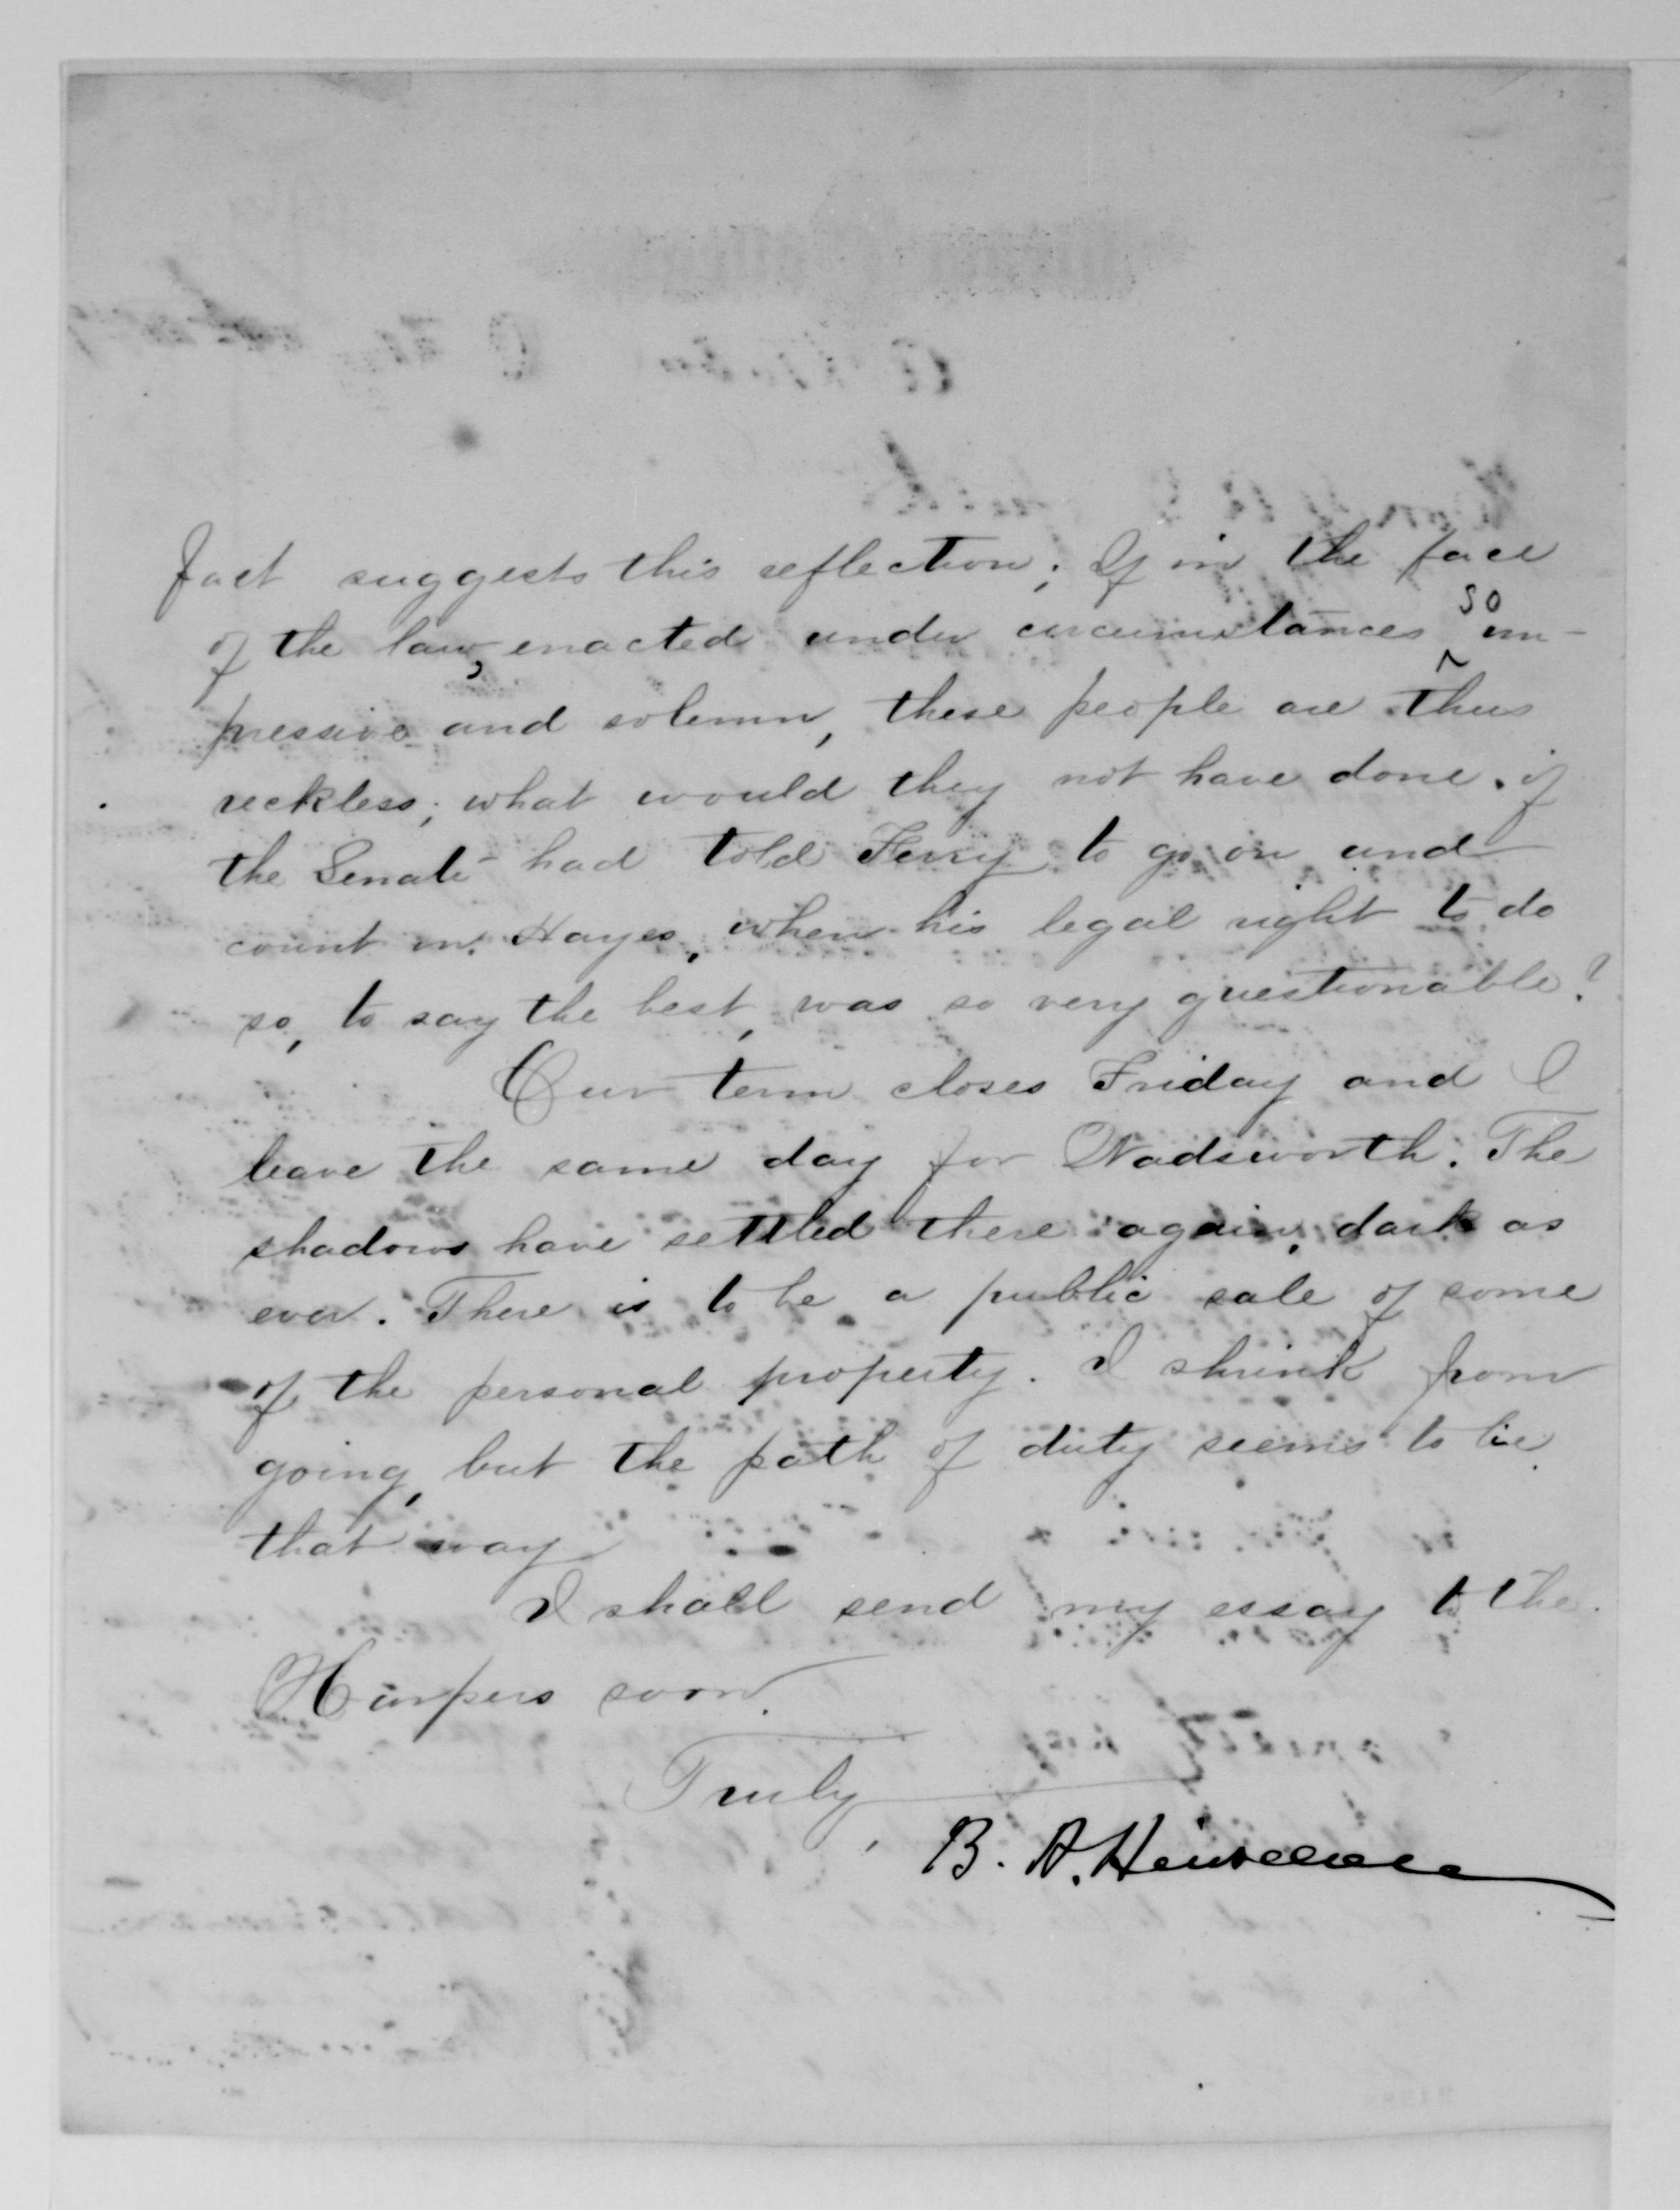 fact suggests this reflection; If in the face
of the law, enacted under circumstances so im-
pressive and solemn, these people are thus
reckless; what would they not have done, if
the Senate had told Ferry to go on and
count in Hayes, when his legal right to do
so, to say the best, was so very questionable?
Our term closes Friday and I
leave the same day for Wadsworth. The
shadows have settled there again, dark as
ever. There is to be a public sale of some
of the personal property. I shrink from
going, but the path of duty seems to lie
that way
I shall send my essay to the
Harpers soon.
Truly,
B. A. Hinsdale